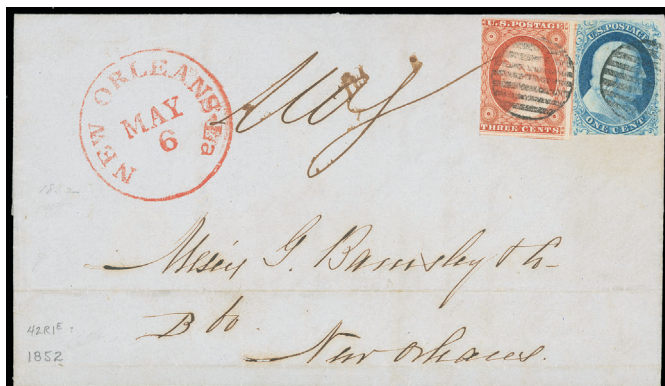 U.S. POSTAGE
THREE CENTS
U.S. POSTAGE
ONE CENT
NEW ORLEANS La
MAY
6
Way
1852
Messrs G. Barnsley & Co
New Orleans.
42R1E
1852